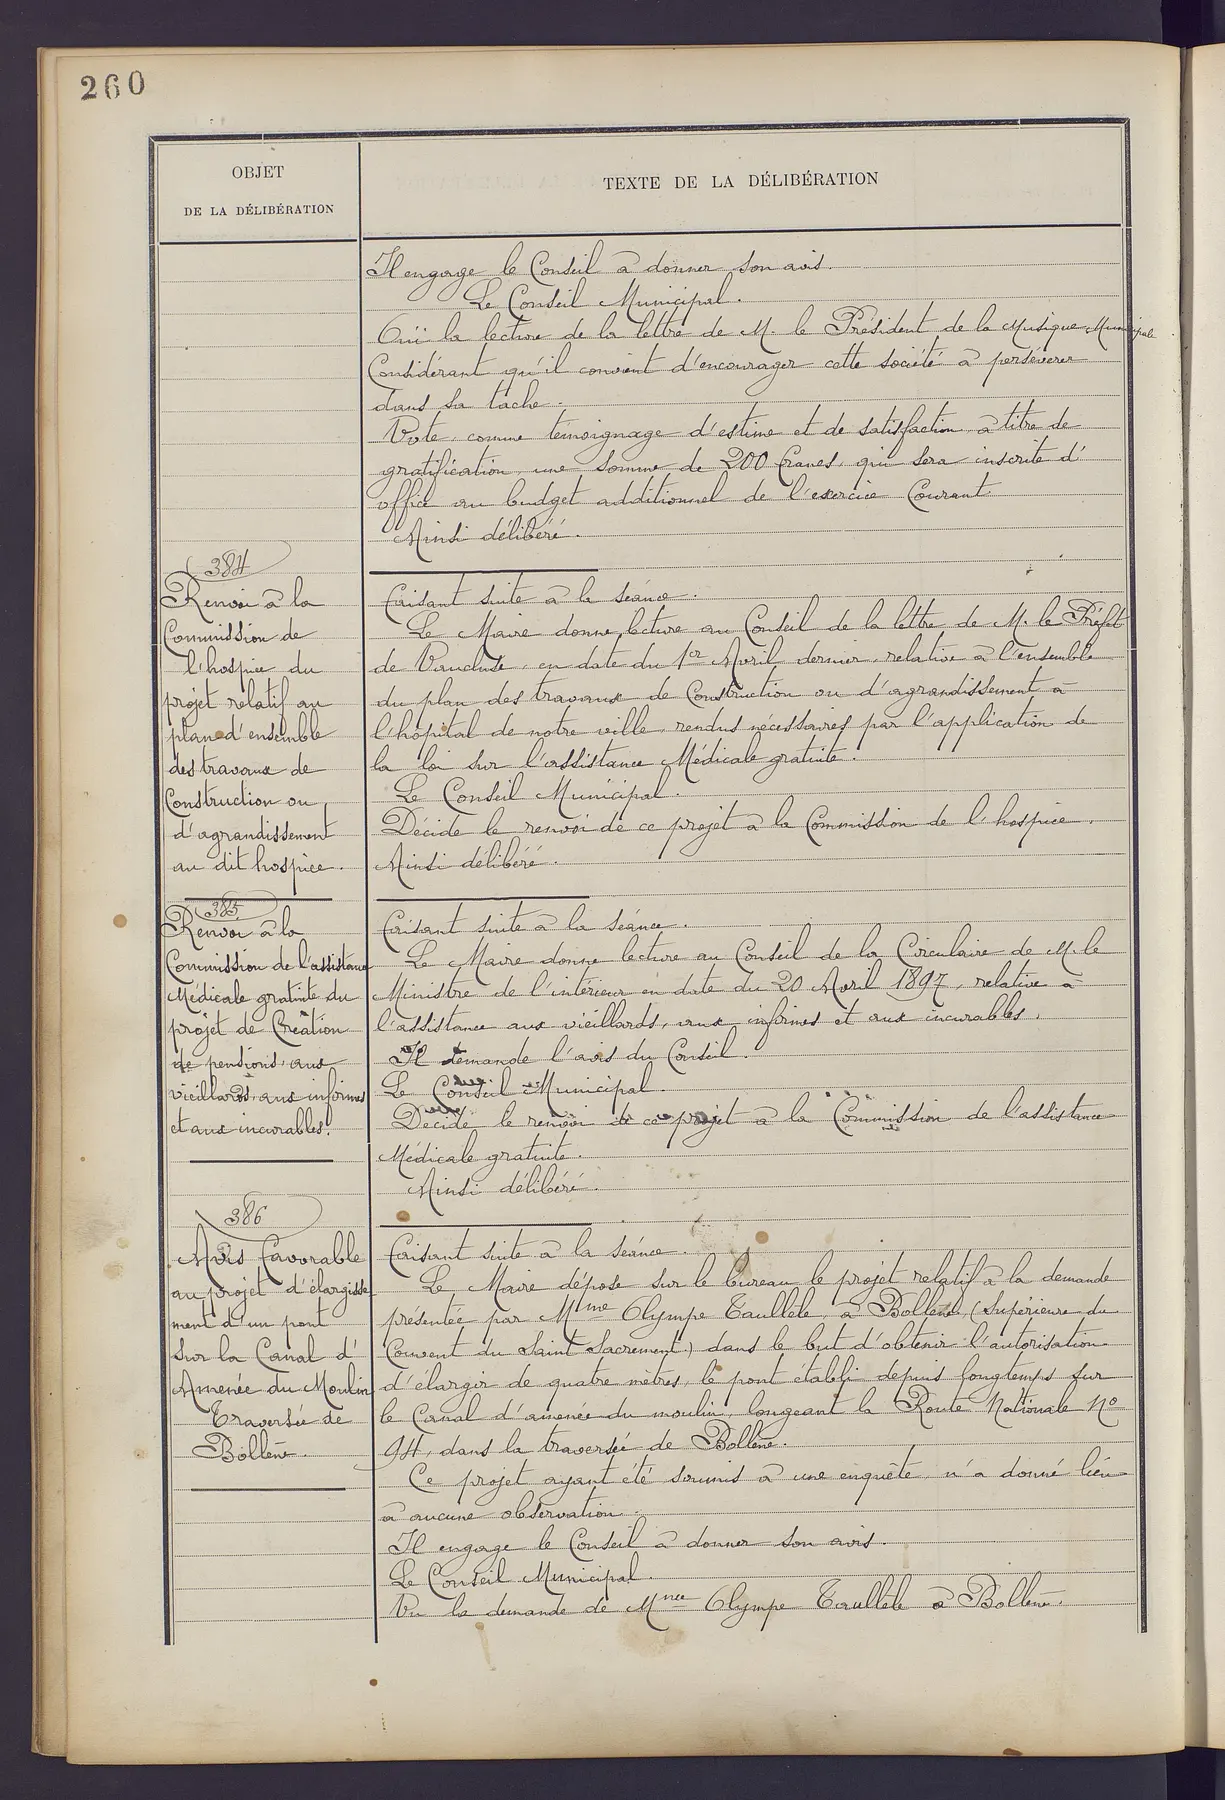 260
OBJET
DE LA DÉLIBÉRATION
TEXTE DE LA DÉLIBÉRATION
Il engage le Conseil à donner son avis.
Le Conseil Municipal.
Ouï la lecture de la lettre de M. le Président de la Musique Municipale
Considérant qu'il convient d'encourager cette société à persévérer
dans sa tache.
Vote, comme témoignage d'estime et de satisfaction, à titre de
gratification, une somme de 200 francs, qui sera inscrite d'
office au budget additionnel de l'exercice Courant.
Ainsi délibéré.
384
Renvoi à la
Commission de
l'hospice du
projet relatif au
plan d'ensemble
des travaux de
Construction ou
d'agrandissement
au dit hospice.
Faisant suite à la séance.
Le Maire donne lecture au Conseil de la lettre de M. le Préfet
de Vaucluse, en date du 1er Avril dernier, relative à l'ensemble
du plan des travaux de Construction ou d'agrandissement à
l'hôpital de notre ville, rendus nécessaires par l'application de
la loi sur l'assistance Médicale gratuite.
Le Conseil Municipal.
Décide le renvoi de ce projet à la Commission de l'hospice.
Ainsi délibéré.
385
Renvoi à la
Commission de l'assistance
Médicale gratuite du
projet de Création
de pensions, aux
vieillards, aux infirmes
et aux incurables.
Faisant suite à la séance.
Le Maire donne lecture au Conseil de la Circulaire de M. le
Ministre de l'intérieur en date du 20 Avril 1897, relative à
l'assistance aux vieillards, aux infirmes et aux incurables.
Il demande l'avis du Conseil.
Le Conseil Municipal.
Décide le renvoi de ce projet à la Commission de l'assistance
Médicale gratuite.
Ainsi délibéré.
386
Avis favorable
au projet d'élargisse
ment d'un pont
sur la Canal d'
Amenée du Moulin
Traversée de
Bollène.
Faisant suite à la séance.
Le Maire dépose sur le bureau le projet relatif à la demande
présentée par Mme Olympe Taullèle, à Bollène, (Supérieure du
Couvent du Saint Sacrement) dans le but d'obtenir l'autorisation
d'élargir de quatre mètres, le pont établi depuis longtemps sur
le Canal d'amenée du moulin, longeant la Route Nationale No
94, dans la traversée de Bollène.
Ce projet ayant été soumis à une enquête, n'a donné lieu
à aucune observation.
Il engage le Conseil à donner son avis.
Le Conseil Municipal.
Vu la demande de Mme Olympe Taullèle à Bollène.